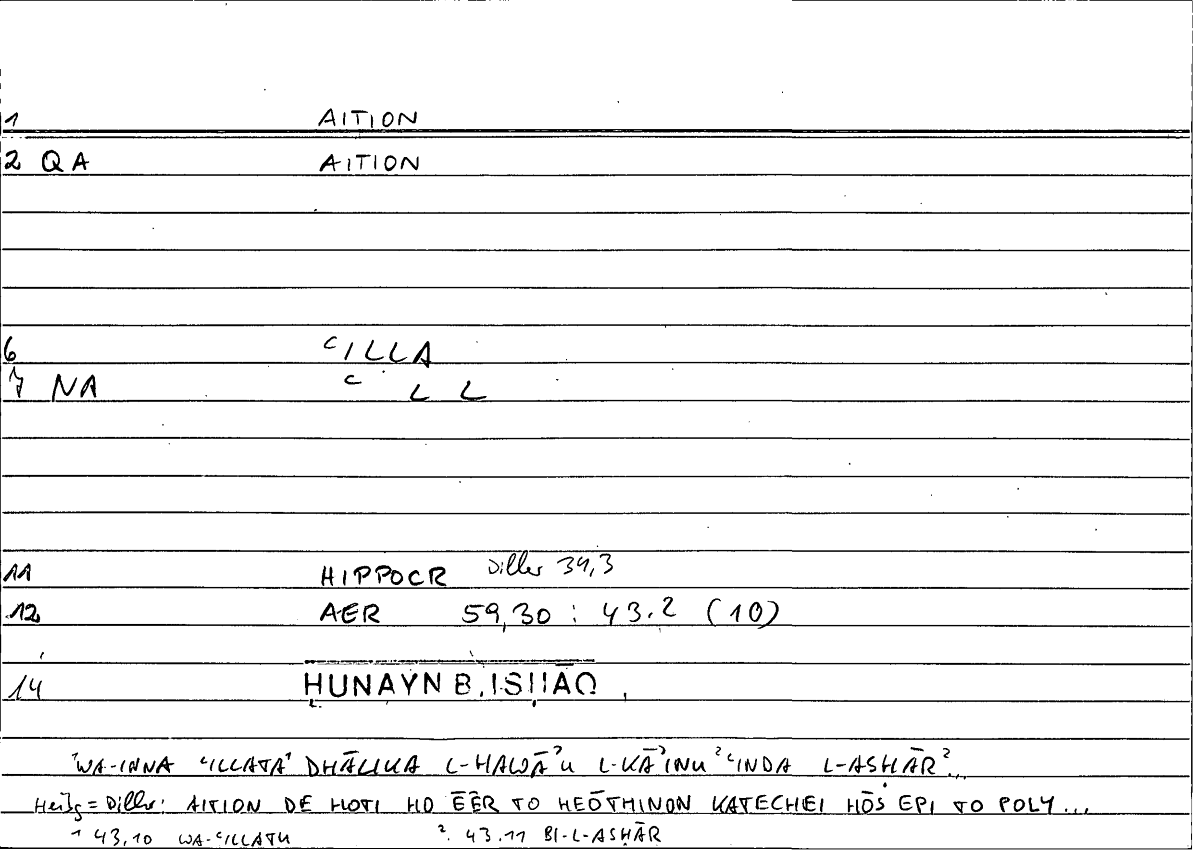 1 AITION
2 QA AITION
6 ʿILLA
7 NA ʿ L L
11 HIPPOCR Diller 34,3
12 AER 59,30 : 43.2 (10)
14 ḤUNAYN B. ISḤĀQ
¹WA-INNA ʿILLATA¹ DHĀLIKA L-HAWĀʾU L-KĀʾINU ²ʿINDA L-ASḤĀR²...
Heibg = Diller: AITION DE HOTI HO ĒĒR TO HEŌTHINON KATECHEI HŌS EPI TO POLY...
¹ 43,10 WA-ʿILLATU ². 43.11 BI-L-ASḤĀR